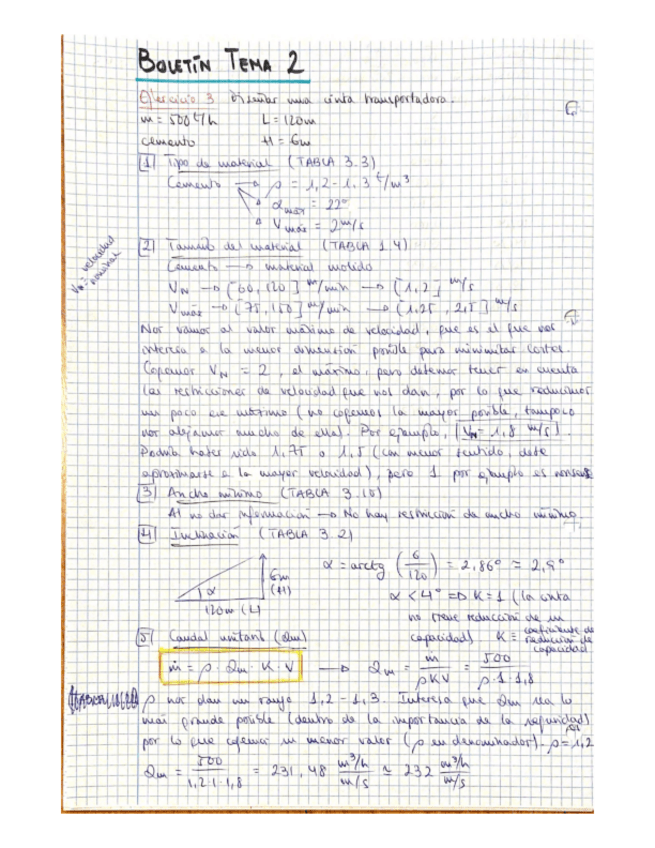 BOLETÍN TEMA 2
Ejercicio 3 Diseñar una cinta transportadora.
m = 500 t/h L = 120m
cemento H = 6m
1 Tipo de material (TABLA 3.3)
Cemento → ρ = 1,2 - 1,3 t/m³
α máx = 22º
V máx = 2 m/s
2 Tamaño del material (TABLA 1.4)
VN = velocidad nominal
Cemento → material molido
VN → [60, 120] m/min → [1, 2] m/s
Vmáx → [75, 150] m/min → [1,25, 2,5] m/s
Nos vamos al valor máximo de velocidad, que es el que nos
interesa a la menor dimensión posible para minimizar costes.
Cogemos VN = 2, el máximo, pero debemos tener en cuenta
las restricciones de velocidad que nos dan, por lo que reducimos
un poco ese máximo (no cogemos la mayor posible, tampoco
nos alejamos mucho de ella). Por ejemplo, VN = 1,8 m/s.
Podría haber sido 1,75 o 1,5 (con menor sentido, debe
aproximarse a la mayor velocidad), pero 1 por ejemplo es
3 Ancho mínimo (TABLA 3.10)
Al no dar información → No hay restricción de ancho mínimo
4 Inclinación (TABLA 3.2)
α 6m (H)
120m (L)
α = arctg (6/120) = 2,86º ≃ 2,9º
α < 4º ⇒ K = 1 (la cinta
no tiene reducción de su
capacidad). K ≡ coeficiente de reducción de capacidad
5 Caudal unitario (Qm)
ṁ = ρ · Qm · K · V → Qm = ṁ/ρKV = 500/ρ·1·1,8
ρ nos dan un rango 1,2 - 1,3. Interesa que Qm sea lo
más grande posible (dentro de la importancia de la seguridad)
por lo que cogemos su menor valor (ρ en denominador). ρ = 1,2
Qm = 500/1,2·1·1,8 = 231,48 m³/h / m/s ≃ 232 m³/h / m/s